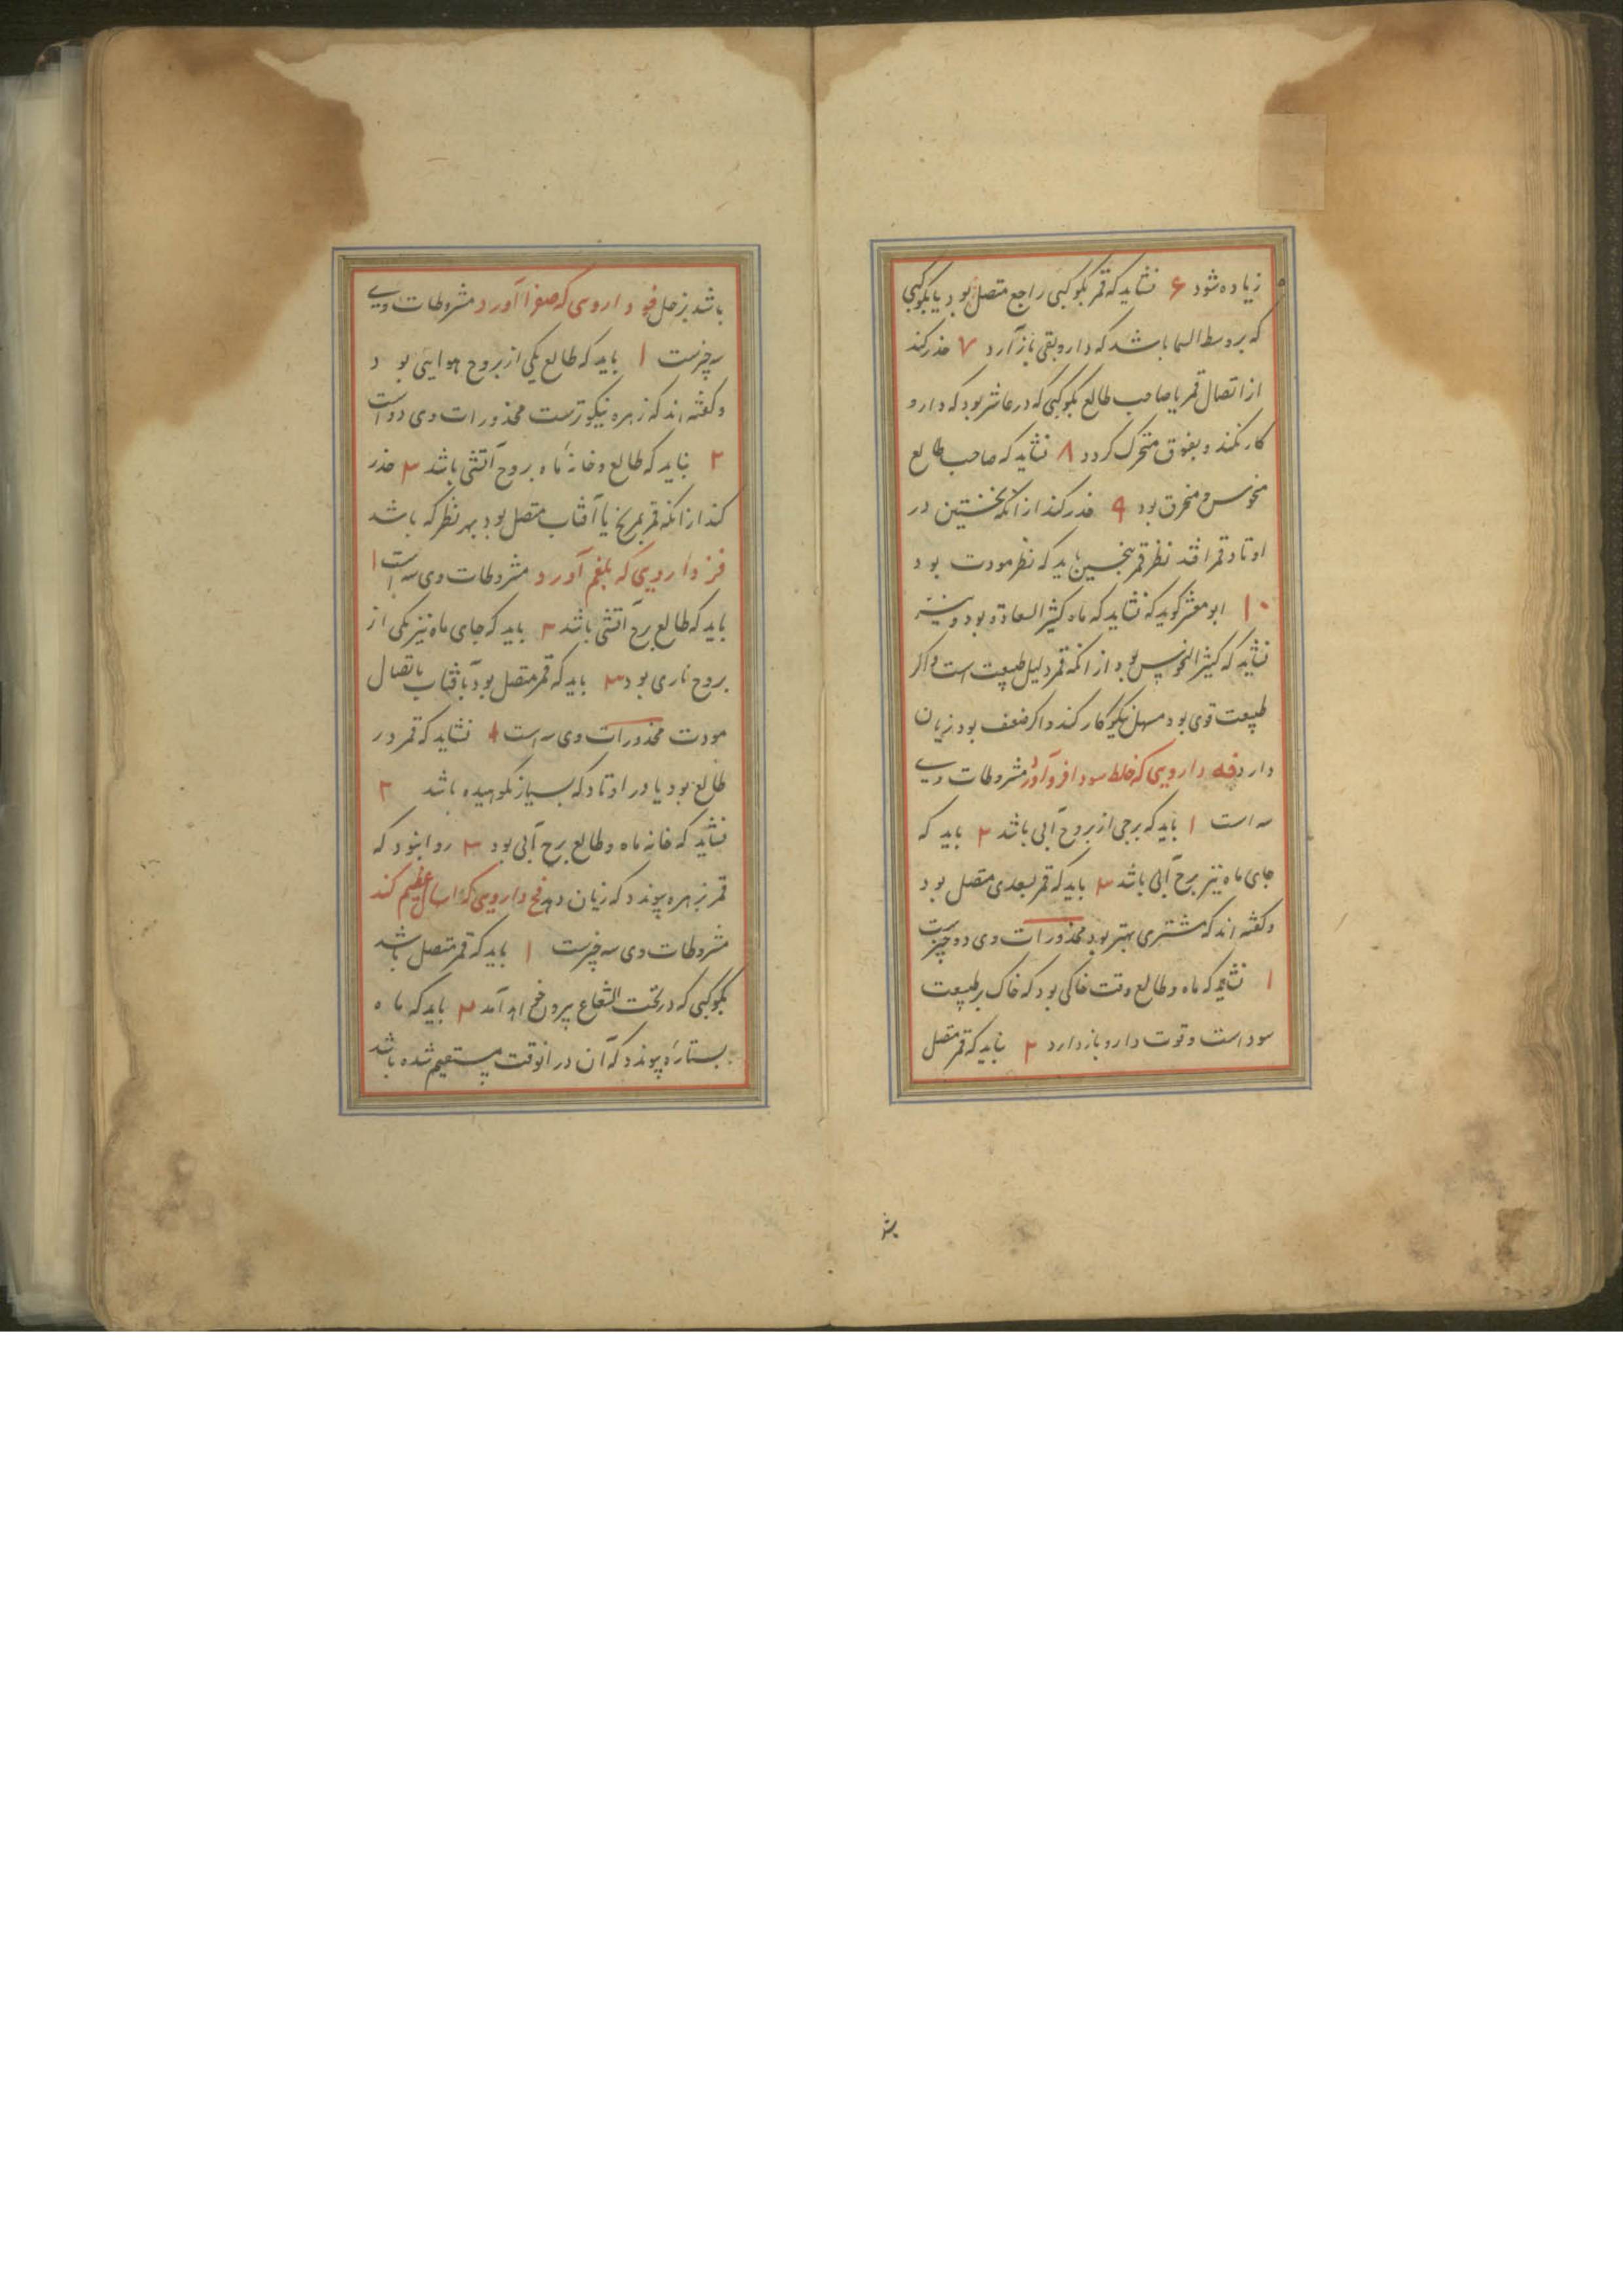 زیاده شود ۶ نشاید که قمر بکوکبی راجع متصل بود یا بکوکبی
که بر وسط السما باشد که دارو بقی باز آرد ۷ حذر کند
از اتصال قمر یا صاحب طالع بکوکبی که در عاشر بود که دارو
کار نکند و بفوق متحرک کردد ۸ نشاید که صاحب طالع
منحوس و محترق بود ۹ حذر کند از آنکه نخستین در
اوتاد قمر افتد نظر قمر بنحسین باید که نظر مودت بود
۱۰ ابو معشر کوید که نشاید که ماه کثیر السعادة بود و نیز
نشاید که کثیر النحوس بود از انکه قمر دلیل طبیعت است و اکر
طبیعت قوی بود مسهل نیکو کار کند و اکر ضعف بود زیان
دارد فه دارویی که خلط سودا فرو آورد مشروطات وی
سه است ۱ باید که برجی از بروج آبی باشد ۲ باید که
جای ماه نیز برج آبی باشد ۳ باید که قمر بسعدی متصل بود
و کفته اند که مشتری بهتر بود محذورات وی دو چیزست
۱ نشاید که ماه و طالع وقت خاکی بود که خاک بر طبیعت
سوداست و قوت دارو باز دارد ۲ نباید که قمر متصل
باشد بزحل فو دارویی که صفرا آورد مشروطات وی
سه چیزست ۱ باید که طالع یکی از بروج هوایی بود
و کفته اند که زهره نیکوترست محذورات وی دو است
۲ نباید که طالع و خانهٔ ماه بروج آتشی باشد ۳ حذر
کند از انکه قمر بمریخ یا آفتاب متصل بود بهر نظر که باشد
فز دارویی که بلغم آورد مشروطات وی سه است ۱
باید که طالع برج آتشی باشد ۲ باید که جای ماه نیز یکی از
بروج ناری بود ۳ باید که قمر متصل بود بآفتاب باتصال
مودت محذورات وی سه است ۱ نشاید که قمر در
طالع بود یا در اوتاد که بسیار نکوهیده باشد ۲
نشاید که خانه ماه و طالع برج آبی بود ۳ روا نبود که
قمر بزهره پیوندد که زیان دهد فح دارویی که اسهال عظیم کند
مشروطات وی سه چیزست ۱ باید که قمر متصل باشد
بکوکبی که در تحت الشعاع بیرون خواهد آمد ۲ باید که ماه
بستارهٔ پیوندد که آن در انوقت مستقیم شده باشد